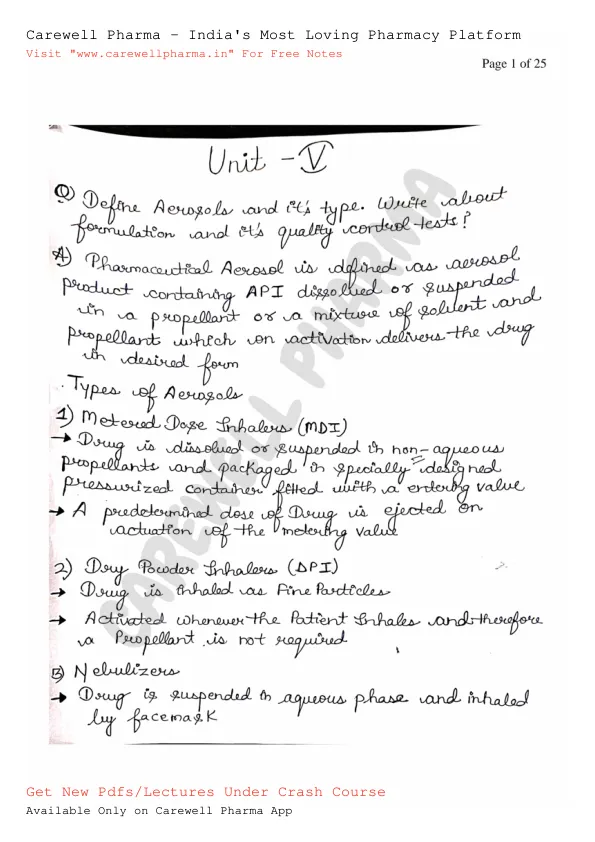 Carewell Pharma – India's Most Loving Pharmacy Platform
Visit "www.carewellpharma.in" For Free Notes
Page 1 of 25
Unit - V
Q) Define Aerosols and it's type. Write about
formulation and it's quality control tests?
A) Pharmaceutical Aerosol is defined as aerosol
product containing API dissolved or suspended
in a propellant or a mixture of solvent and
propellant which on activation delivers the drug
in desired form
. Types of Aerosols
1) Metered Dose Inhalers (MDI)
→ Drug is dissolved or suspended in non-aqueous
propellants and packaged in specially designed
pressurized container fitted with a entering value
→ A predetermined dose of Drug is ejected on
actuation of the metering value
2) Dry Powder Inhalers (DPI)
→ Drug is inhaled as Fine Particles
→ Activated whenever the Patient Inhales and therefore
a Propellant is not required
3) Nebulizers
→ Drug is suspended in aqueous phase and inhaled
by facemask
CAREWELL PHARMA
Get New Pdfs/Lectures Under Crash Course
Available Only on Carewell Pharma App